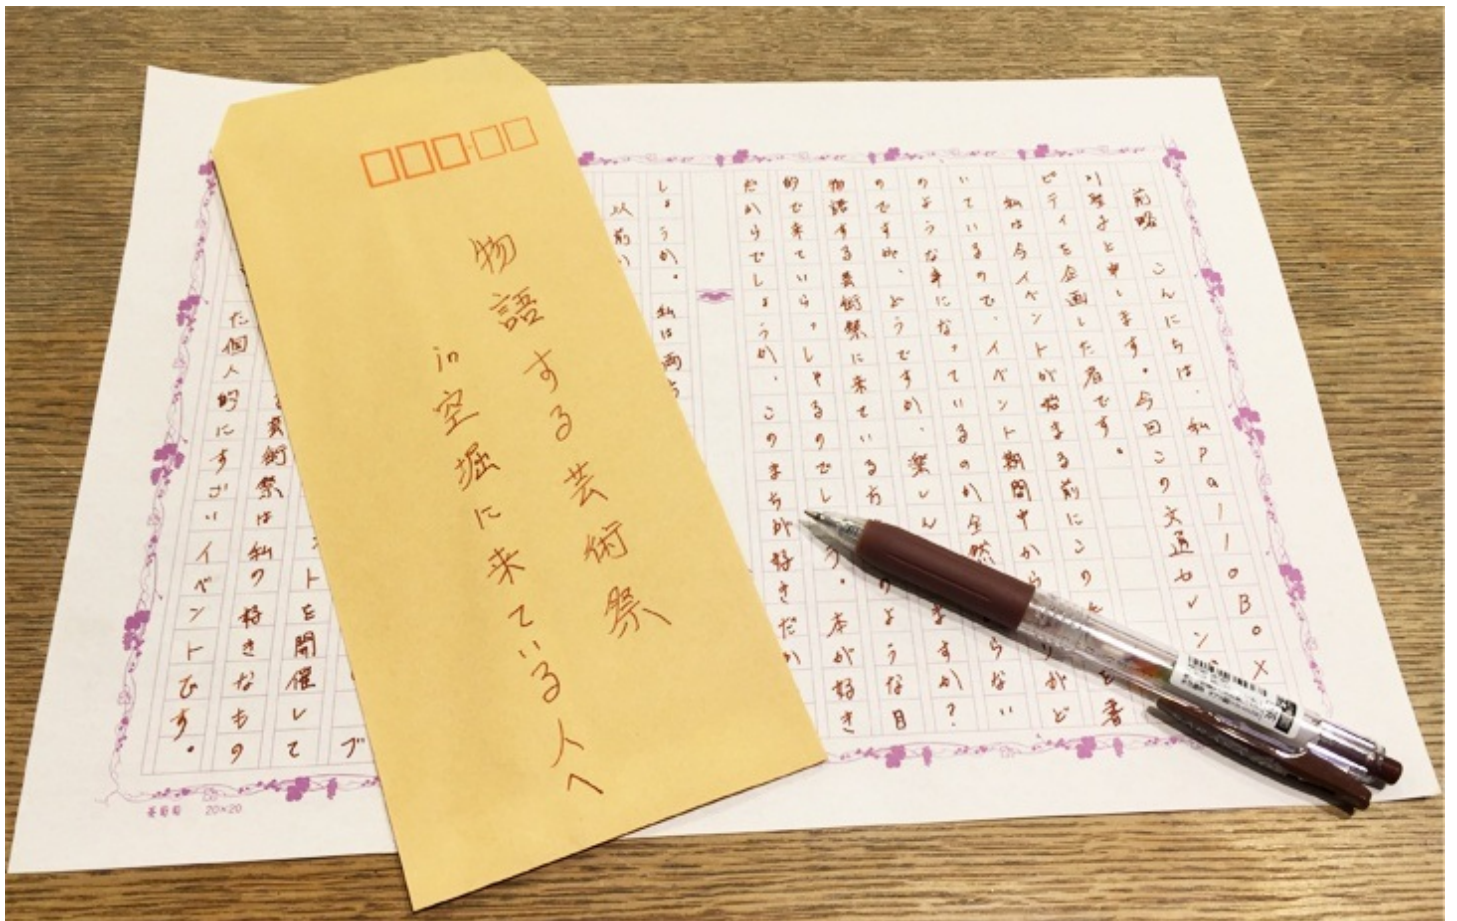 物語する芸術祭
in 空堀に来ている人へ
前略 こんにちは、私PalloBox
と申します。今回この文通セレン
ピティを企画した者です。
私は今イベントが始まる前にこの
を書
いているので、イベント期間中から
がど
のような事になっているのか全然
らない
のですが、どうですか、楽しん
ますか?
物語する芸術祭に来ている方
のような目
的で来ていらっしゃるのでし
う。本が好き
だからでしょうか、このまちが好きだか
しょうか。私は両方
以前
ブ
ントを開催して
芸術祭は私の好きなもの
た個人的にすごいイベントです。
20×20